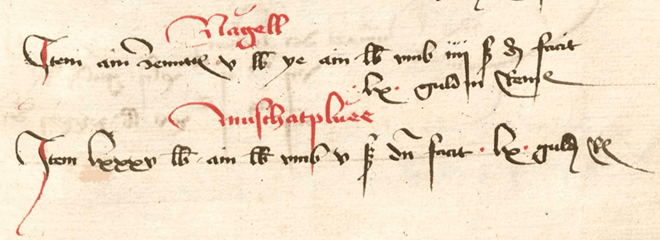 Nagell
Item ain Zenntn v lb ye ain lb vmb iiij ß dn facit
lx guldin Reinß
muschatplüee
Item lxxxv lb ain lb vmb v ß dn facit · lx · guld